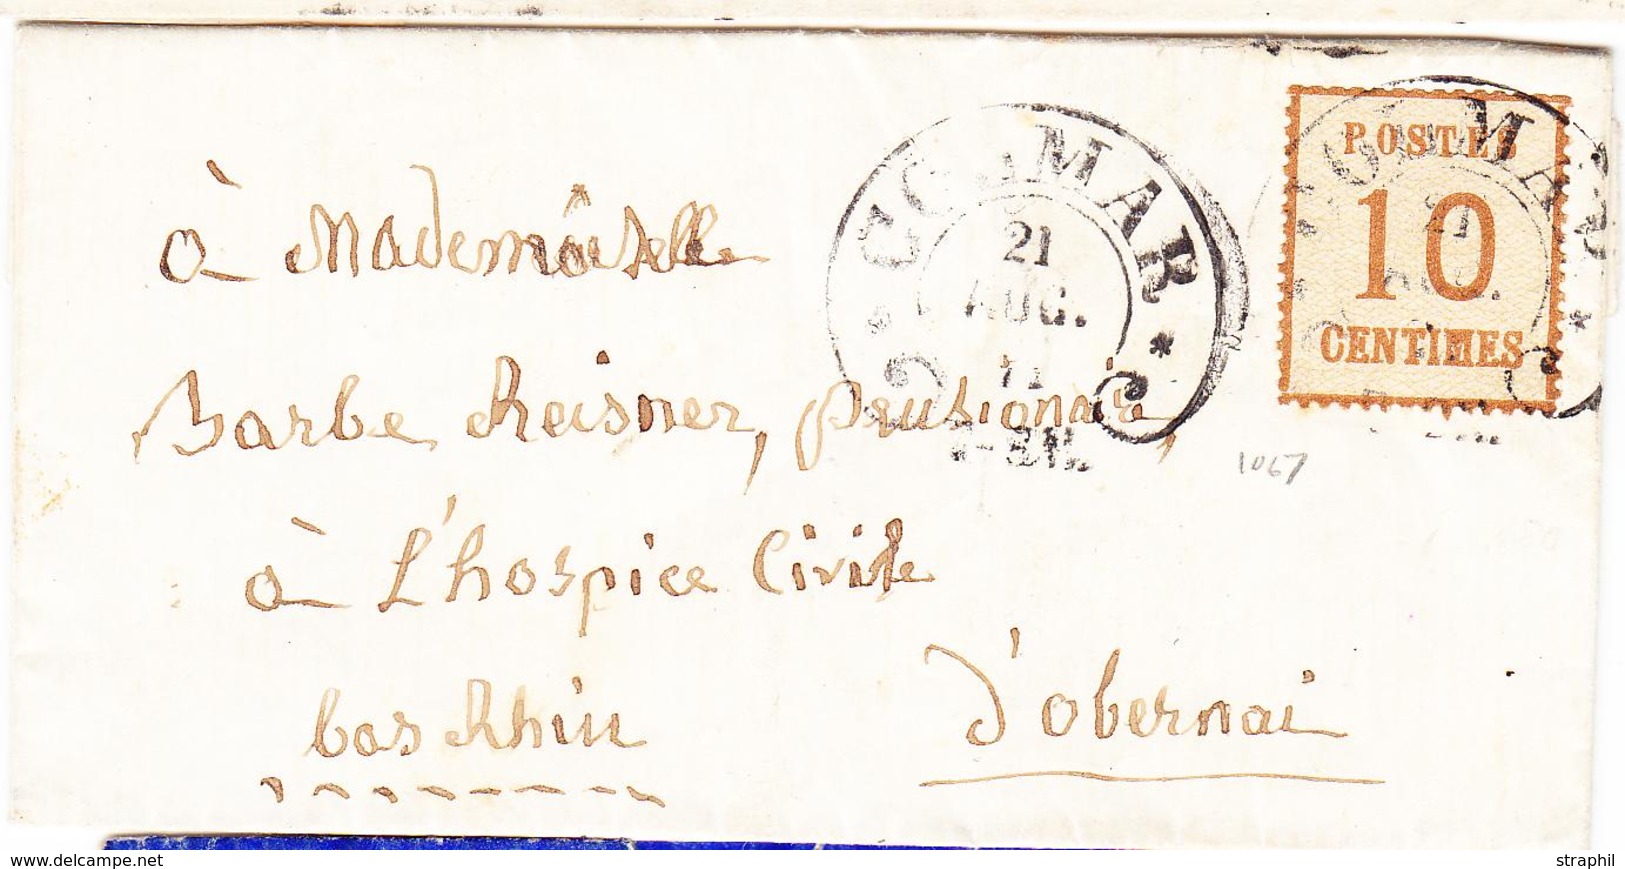 COLMAR
21
AUG.
71
POSTES
10
CENTIMES
COLMAR
21
AUG.
1067
à Mademoiselle
Barbe Reisner, pensionaire,
à L'hospice Civile
d'obernai
bas Rhin
www.delcampe.net
straphil